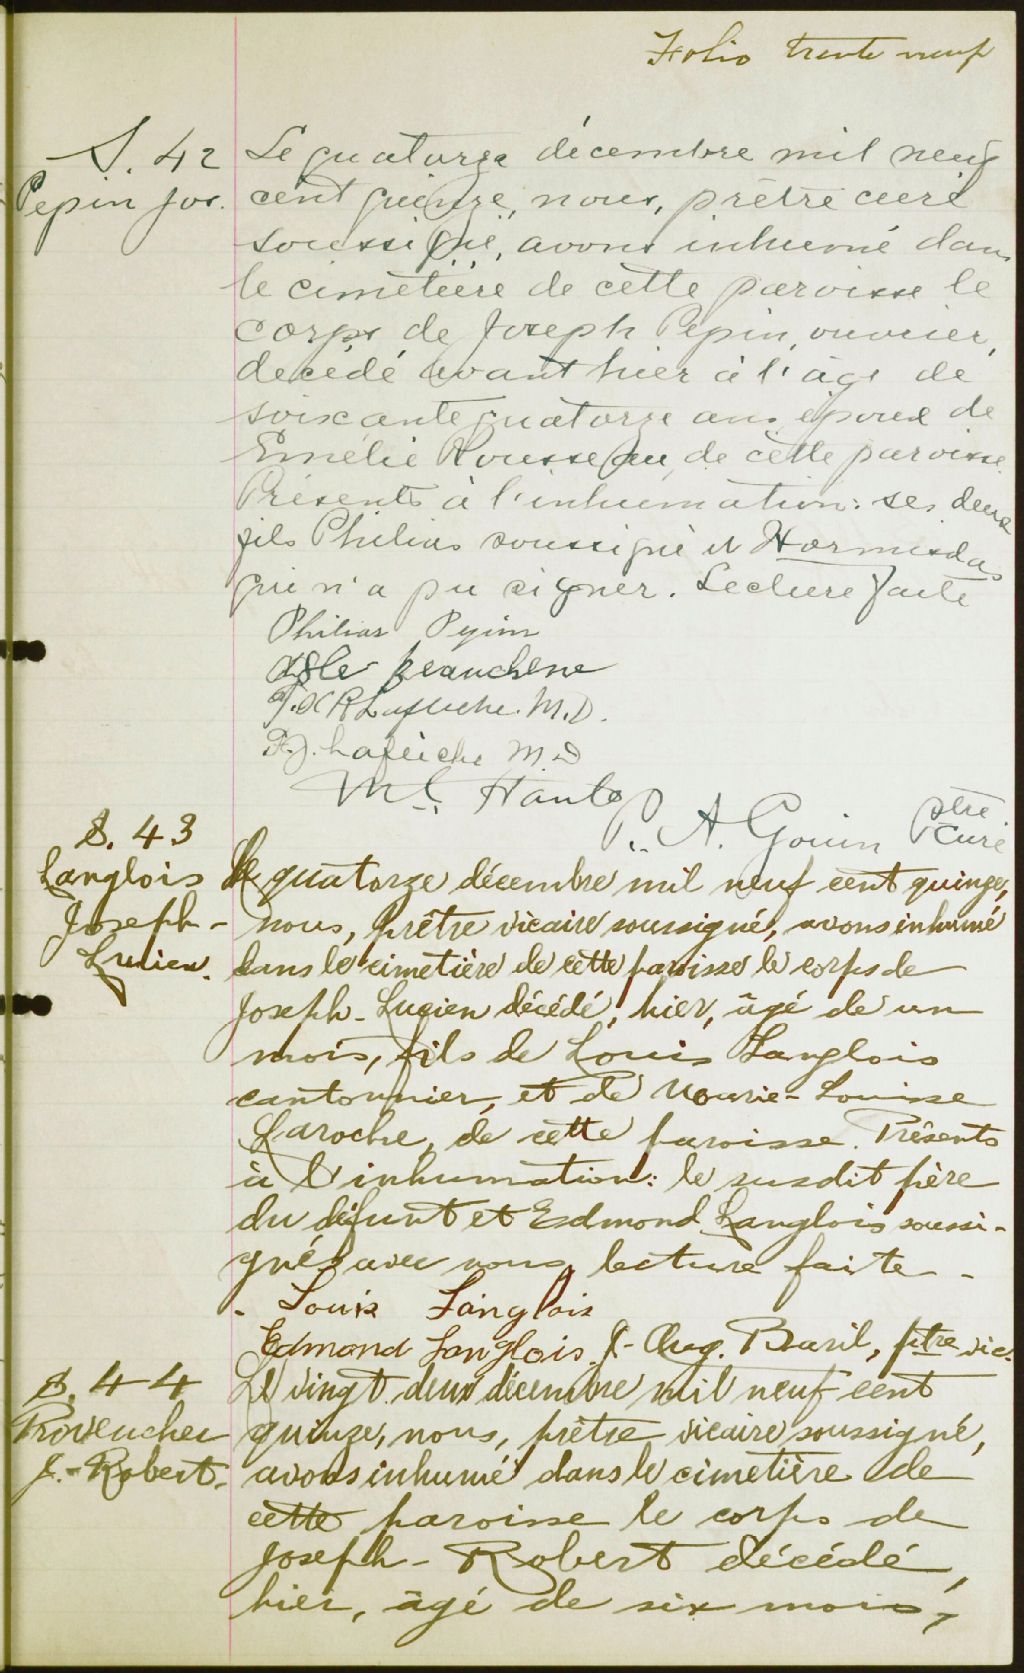 Folio trente neuf
S. 42
Pepin Jos.
Le quatorze décembre mil neuf
cent quinze, nous, prêtre curé
soussigné, avons inhumé dans
le cimetière de cette paroisse le
corps de Joseph Pepin, ouvrier,
décédé avant hier à l'âge de
soixante quatorze ans époux de
Emélie Rousseau, de cette paroisse.
Présents à l'inhumation: ses deux
fils Philias soussigné et Hormisdas
qui n'a pu signer. Lecture faite
Philias Pepin
Beauchene
Lafleche. M.D.
F.J. Lafleche M.D
P. A. Gouin ptre
curé
S. 43
Langlois
Joseph-
Lucien.
Le quatorze décembre mil neuf cent quinze,
nous, prêtre vicaire soussigné, avons inhumé
dans le cimetière de cette paroisse le corps de
Joseph-Lucien décédé, hier, âgé de un
mois, fils de Louis Langlois
cantonnier, et de Marie-Louise
Laroche, de cette paroisse. Présents
à l'inhumation: le susdit père
du défunt et Edmond Langlois soussi-
gnés avec nous, lecture faite -
- Louis Langlois
Edmond Langlois. J.-Aug. Baril, ptre vic.
S. 44
Provencher
J.-Robert.
Le vingt deux décembre mil neuf cent
quinze, nous, prêtre vicaire soussigné,
avons inhumé dans le cimetière de
cette paroisse le corps de
Joseph-Robert décédé,
hier, âgé de six mois,